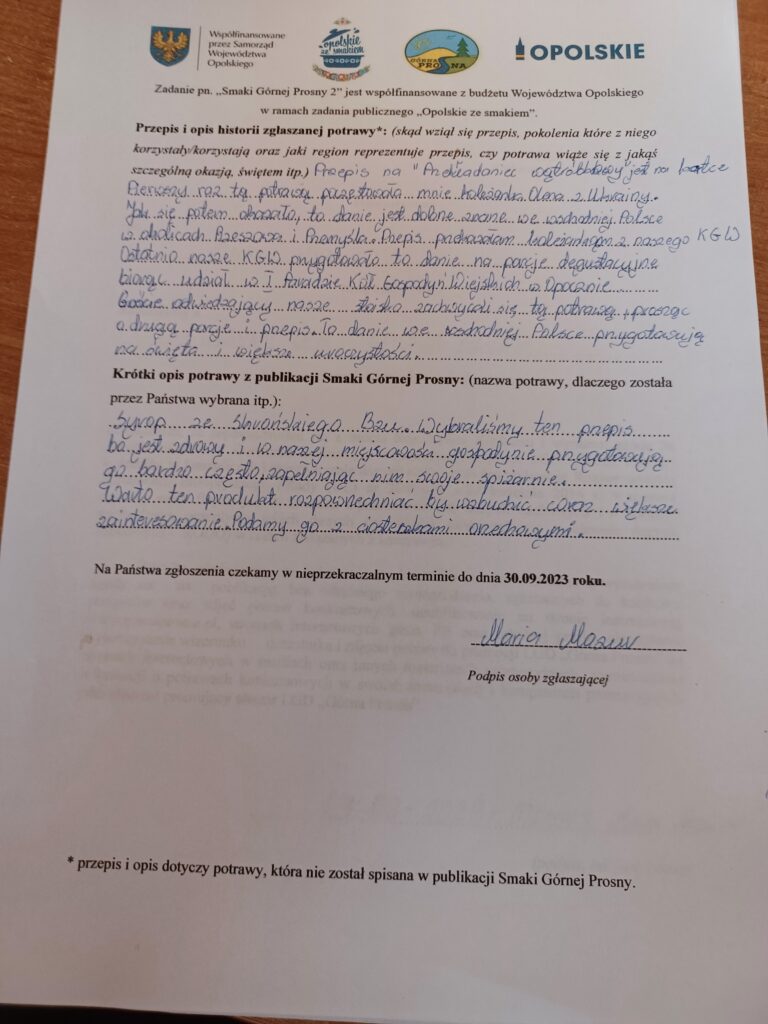 Współfinansowane
przez Samorząd
Województwa
Opolskiego
opolskie
ze smakiem
GÓRNA
PROSNA
OPOLSKIE
Zadanie pn. „Smaki Górnej Prosny 2” jest współfinansowane z budżetu Województwa Opolskiego
w ramach zadania publicznego „Opolskie ze smakiem”.
Przepis i opis historii zgłaszanej potrawy*: (skąd wziął się przepis, pokolenia które z niego
korzystały/korzystają oraz jaki region reprezentuje przepis, czy potrawa wiąże się z jakąś
szczególną okazją, świętem itp.) Przepis na "Przekładaniec wątróbkowy" jest na kartce
Pierwszy raz tą potrawą poczęstowała mnie koleżanka Olena z Ukrainy.
Jak się potem okazało, to danie jest dobrze znane we wschodniej Polsce
w okolicach Rzeszowa i Przemyśla. Przepis przekazałam koleżankom z naszego KGW
Ostatnio nasze KGW przygotowało to danie na porcje degustacyjne
biorąc udział w I Paradzie Kół Gospodyń Wiejskich w Opocznie
Goście odwiedzający nasze stoisko zachwycali się tą potrawą, prosząc
o drugą porcję i przepis. To danie we wschodniej Polsce przygotowują
na święta i większe uroczystości.
Krótki opis potrawy z publikacji Smaki Górnej Prosny: (nazwa potrawy, dlaczego została
przez Państwa wybrana itp.):
Syrop ze Słowańskiego Bzu. Wybraliśmy ten przepis
bo jest zdrowy i w naszej miejscowości gospodynie przygotowują
go bardzo często, zapełniając nim swoje spiżarnie.
Warto ten produkt rozpowszechniać by wzbudzić coraz większe
zainteresowanie. Podamy go z ciasteczkami orzechowymi.
Na Państwa zgłoszenia czekamy w nieprzekraczalnym terminie do dnia 30.09.2023 roku.
Maria Mazur
Podpis osoby zgłaszającej
* przepis i opis dotyczy potrawy, która nie został spisana w publikacji Smaki Górnej Prosny.